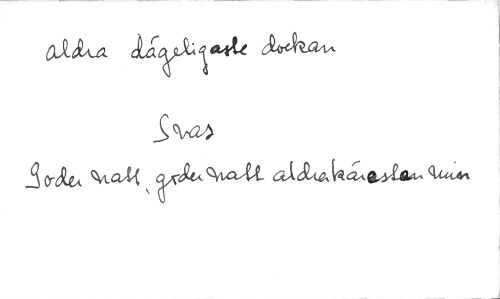 aldra dägeligaste dockan
Svar
Goder natt, goder natt aldrakärestan min